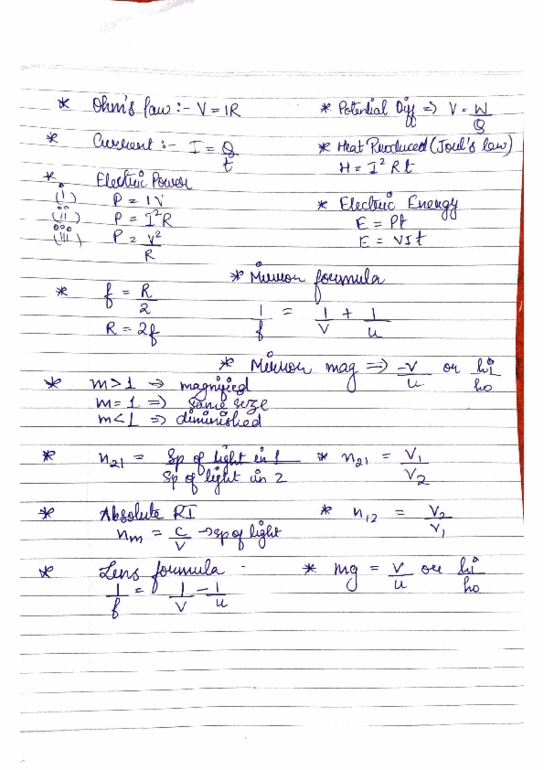 * Ohm's law :- V = IR
* Potential Diff => V = W/Q
* Current :- I = Q/t
* Heat Produced (Joul's law)
H = I² R t
* Electric Power
(i) P = IV
(ii) P = I²R
(iii) P = V²/R
* Electric Energy
E = Pt
E = VIt
* f = R/2
R = 2f
* Mirror formula
1/f = 1/v + 1/u
* Mirror mag => -v/u or hi/ho
* m > 1 -> magnified
m = 1 => same size
m < 1 => diminished
* n21 = Sp of light in 1 / Sp of light in 2
* n21 = V1/V2
* Absolute RI
nm = c/v -> sp of light
* n12 = V2/V1
* Lens formula -
1/f = 1/v - 1/u
* mg = v/u or hi/ho